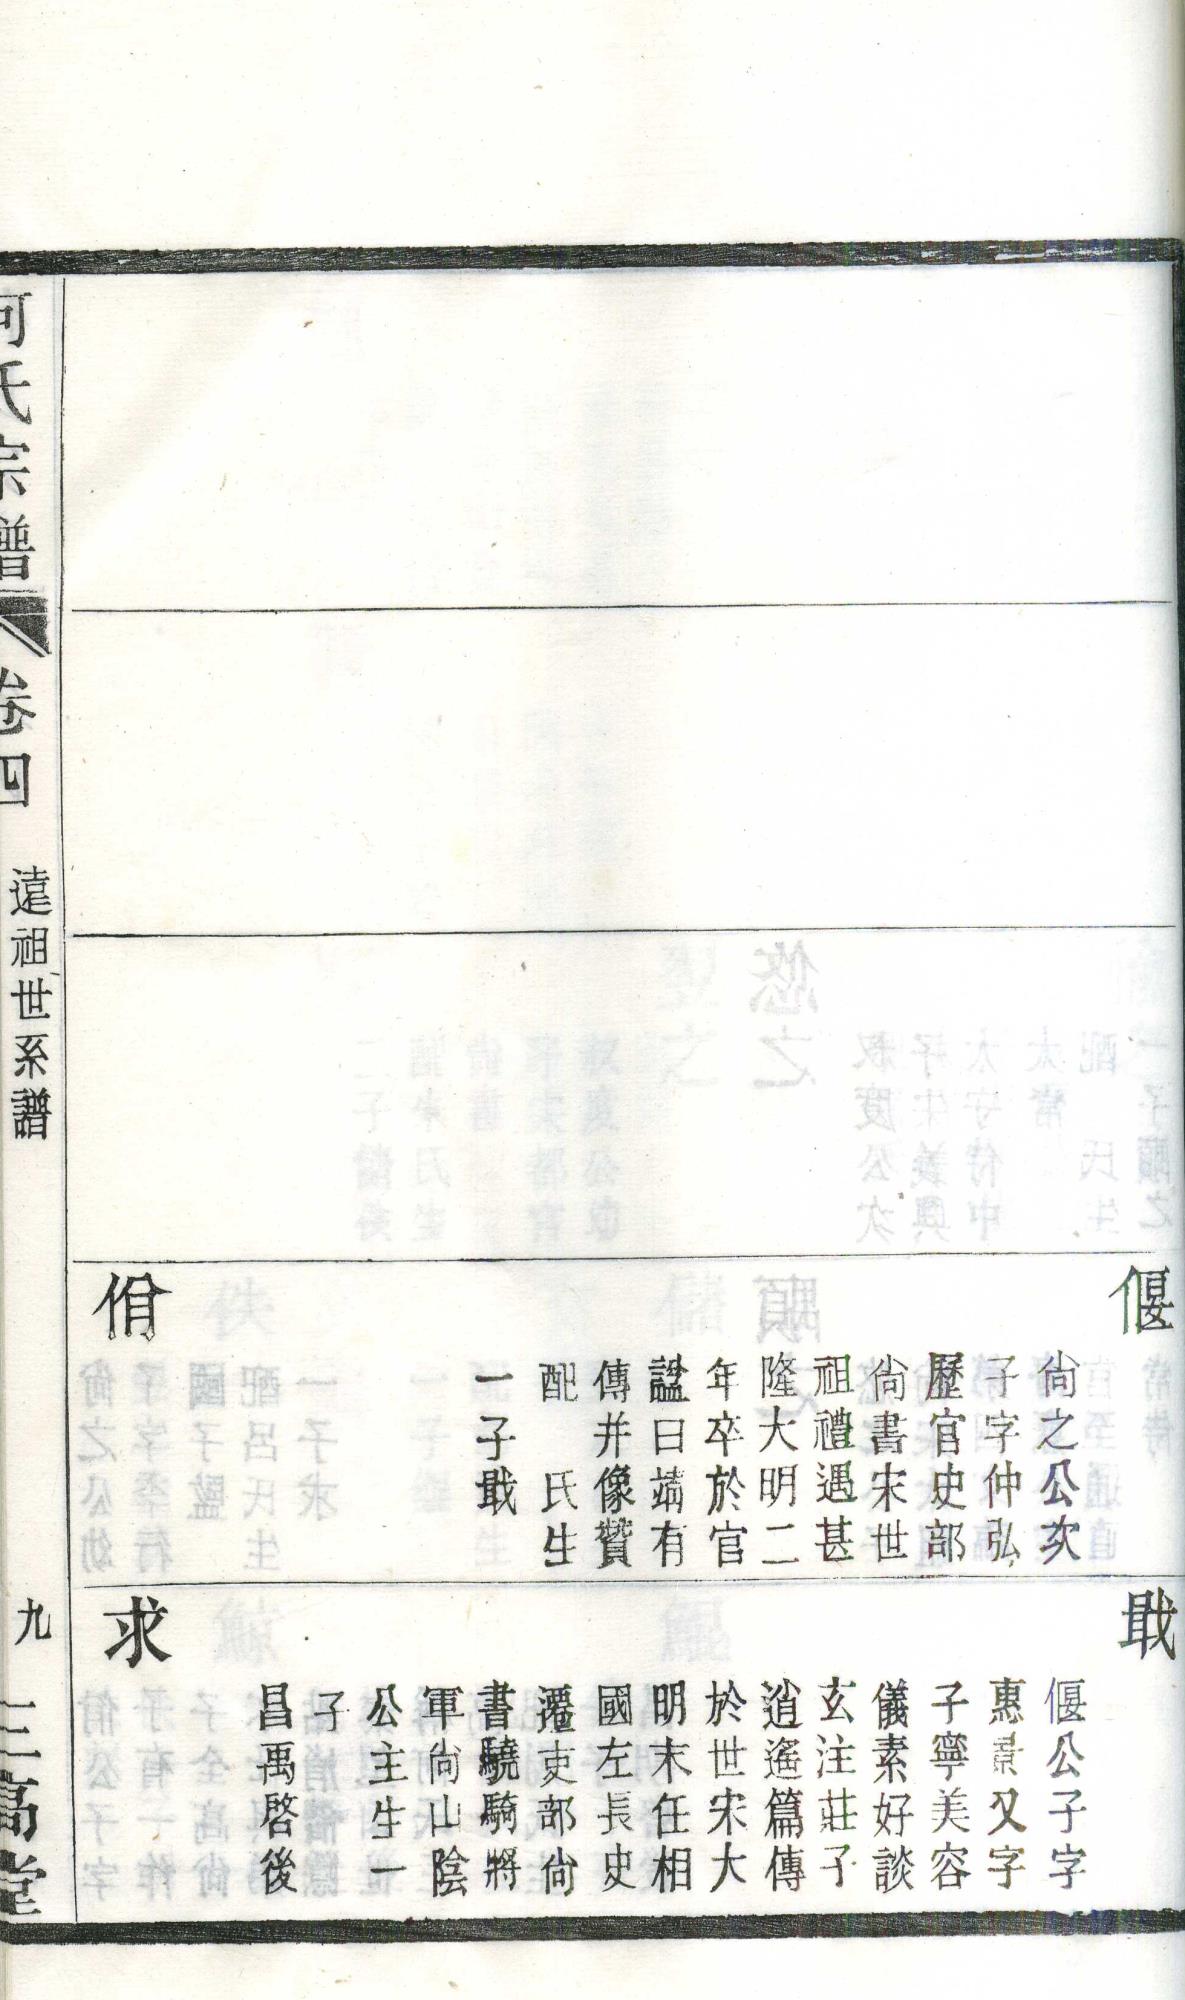 偃
尙之公次
子字仲弘
歷官史部
尙書宋世
祖禮遇甚
隆大明二
年卒於官
諡曰靖有
傳并像贊
配　氏生
一子戢
佾
戢
偃公子字
惠景又字
子寧美容
儀素好談
玄注莊子
逍遙篇傳
於世宋大
明末任相
國左長史
遷吏部尙
書驍騎將
軍尙山陰
公主生一
子
昌禹啓後
求
何氏宗譜
卷四
遠祖世系譜
九
三高堂